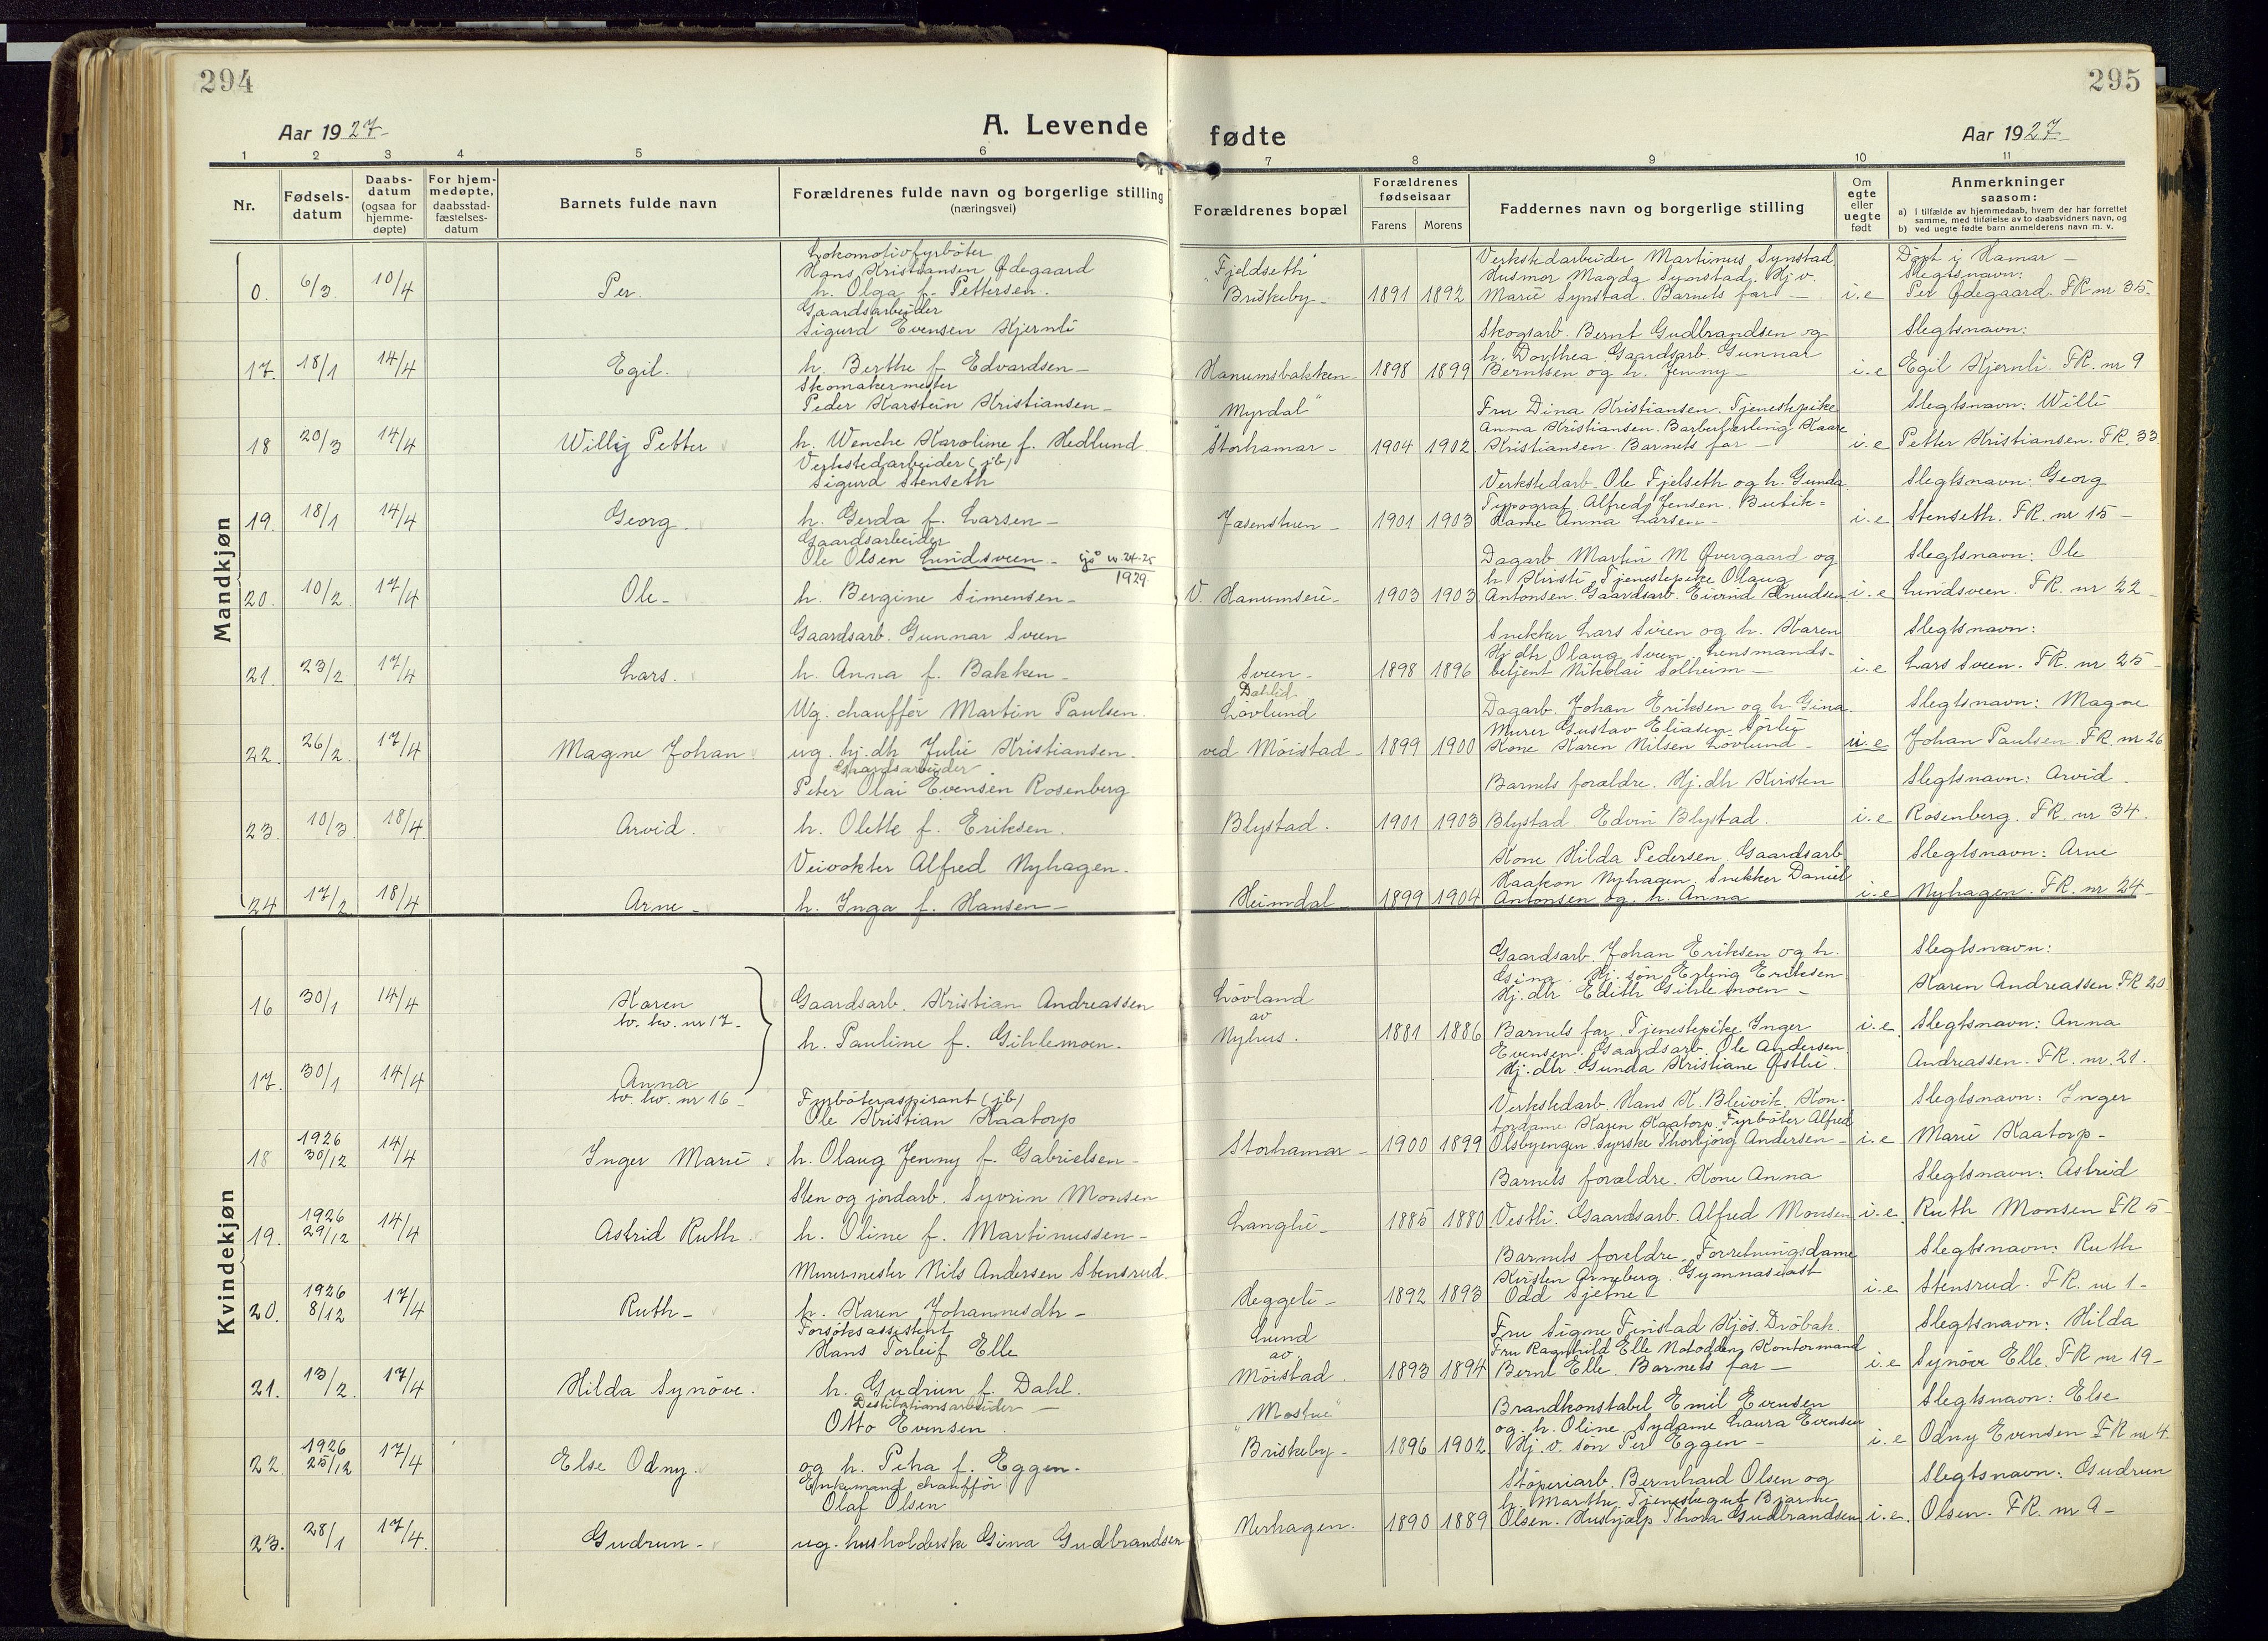 294
Aar 1927
A. Levende
1 2 3 4 5 6
Nr.
Fødsels-
datum
Daabs-
datum
(ogsaa for
hjemme-
døpte)
For hjem-
medøpte,
daabsstad-
fæstelses-
datum
Barnets fulde navn
Forældrenes fulde navn og borgerlige stilling
(næringsvei)
Mandkjøn
Lokomotivfyrböter
Hans Kristiansen Ødegaard
0. 6/3 10/4 Per. h. Olga f. Pettersen.
Gaardsarbeider
Sigurd Evensen Kjernli
17. 18/1 14/4 Egil. h. Berthe f. Edvardsen
Skomakermester
Peder Karstein Kristiansen
18 20/3 14/4 Willy Petter h. Wenche Karoline f. Hedlund
Verkstedarbeider (jb)
Sigurd Stenseth
19. 18/1 14/4 Georg. h. Gerda f. Larsen
Gaardsarbeider
Ole Olsen Lundsveen 24-25
1929
20. 10/2 17/4 Ole h. Bergine Simensen
Gaardsarb. Gunnar Sveen
21. 23/2 17/4 Lars. h. Anna f. Bakken
Ug. chaufför Martin Paulsen.
22. 26/2 17/4 Magne Johan ug. hj.dtr Julie Kristiansen.
Gaardsarbeider
Peter Olai Evensen Rosenberg
23. 10/3 18/4 Arvid. h. Olette f. Eriksen.
Veivokter Alfred Nyhagen.
24 17/2 18/4 Arne h. Inga f. Hansen
Kvindekjøn
16 30/1 14/4 Karen Gaardsarb. Kristian Andreassen
tv. tv. nr 17.
h. Pauline f. Gihlemoen.
17. 30/1 14/4 Anna
tv. tv. nr 16
Fyrböteraspirant (jb)
Ole Kristian Kaatorp
18 1926 30/12 14/4 Inger Marie h. Olaug Jenny f. Gabrielsen
Sten og jordarb. Syvrin Monsen
19. 1926 29/12 14/4 Astrid Ruth. h. Oline f. Martinussen
Murermester Nils Andersen Stensrud.
20. 1926 8/12 17/4 Ruth h. Karen Johannesdtr
Forsöksassistent
Hans Torleif Elle
21. 13/2 17/4 Hilda Synöve. h. Gudrun f. Dahl.
Destilationsarbeider
Otto Evensen
22. 1926 25/12 17/4 Else Odny. og h. Petra f. Eggen.
Enkemand chaufför
Olaf Olsen
23. 28/1 17/4 Gudrun ug. husholderske Gina Gudbrandsen
295
fødte
Aar 1927
7 8 9 10 11
Forældrenes bopæl
Forældrenes
fødselsaar
Farens Morens
Faddernes navn og borgerlige stilling
Om
egte
eller
uegte
født
Anmerkninger
saasom:
a) i tilfælde av hjemmedaab, hvem der har forrettet
samme, med tilføielse av to daabsvidners navn, og
b) ved uegte fødte barn anmelderens navn m. v.
Verkstedarbeider Martinus Synstad Döpt i Hamar
"Fjeldseth" Husmor Magda Synstad. Hj.v. Slegtsnavn:
Briskeby 1891 1892 Marie Synstad. Barnets far i.e Per Ødegaard. FR nr 35.
Skogsarb. Bernt Gudbrandsen og Slegtsnavn:
h. Dorthea. Gaardsarb. Gunnar
Hanumsbakken 1898 1899 Berntsen og h. Jenny i.e Egil Kjernli. FR. nr 9
Myrdal" Fru Dina Kristiansen. Tjenestepike Slegtsnavn: Willi
Anna Kristiansen. Barberlærling Kaare
Storhamar 1904 1902 Kristiansen. Barnets far i.e Petter Kristiansen. FR. 33.
Verkstedarb. Ole Fjelseth og h. Gunda Slegtsnavn: Georg
Typograf Alfred Jensen. Butik=
Jasenstuen 1901 1903 dame Anna Larsen i.e Stenseth. FR. nr 15
Dagarb Martin M Øvergaard og Slegtsnavn: Ole
h. Kirsti. Tjenestepike Olaug
V. Hanumseie 1903 1903 Antonsen. Gaardsarb. Eivind Knudsen i.e Lundsveen. FR. nr 22
Snekker Lars Sveen og h. Karen Slegtsnavn:
Hj.dtr Olaug Sveen. Lensmands-
Sveen 1898 1896 betjent Nikolai Solheim i.e Lars Sveen. FR. nr 25
Dahlid
Lövlund Dagarb. Johan Eriksen og h. Gina. Slegtsnavn: Magne
Murer Gustav Eliasen. Sörlie
ved Möistad 1899 1900 Kone Karen Nilsen Lövlund u.e Johan Paulsen FR. nr 26
Barnets forældre. Hj.dtr Kirsten Slegtsnavn: Arvid.
Blystad. 1901 1903 Blystad. Edvin Blystad. i.e Rosenberg. FR. nr 34.
Kone Hilda Pedersen. Gaardsarb Slegtsnavn: Arne
Haakon Nyhagen. Snekker Daniel
Heimdal 1899 1904 Antonsen og h. Anna i.e Nyhagen. FR. nr 24
Gaardsarb. Johan Eriksen og h. Slegtsnavn:
Gina. Hj. sön Erling Eriksen
Lövland Hj.dtr Edith Gihlemoen Karen Andreassen FR 20
av
Nyhus. 1881 1886 Barnets far. Tjenestepike Inger i.e Slegtsnavn: Anna
Evensen. Gaardsarb. Ole Andersen
Hj.dtr. Gunda Kristiane Østlie. Andreassen. FR. nr. 21.
Verkstedarb. Hans K. Bleivik. Kon- Slegtsnavn: Inger
tordame Karen Kaatorp. Fyrböter Alfred
Storhamar 1900 1899 Olsbyengen. Syerske Thorbjörg Andersen i.e Marie Kaatorp
Barnets forældre. Kone Anna Slegtsnavn: Astrid
Langlie 1885 1880 Vestli. Gaardsarb. Alfred Monsen i.e. Ruth Monsen FR 5
Barnets foreldre. Forretningsdame Slegtsnavn: Ruth
Kirsten Arneberg. Gymnasiast
Heggeli 1892 1893 Odd Sjetne i.e Stensrud. FR. nr 1
Lund Fru Signe Finstad Kjös. Dröbak. Slegtsnavn: Hilda
av Fru Ragnhild Elle Notodden, Kontormand
Möistad. 1893 1894 Bernt Elle. Barnets far i.e Synöve Elle. FR nr 19
"Mostue" Brandkonstabel Emil Evensen Slegtsnavn: Else
og h. Oline. Sydame Laura Evensen
Briskeby 1896 1902 Hj.v. sön Per Eggen i.e Odny Evensen FR nr 4.
Stöperiarb. Bernhard Olsen og Slegtsnavn: Gudrun
h. Marthe. Tjenestegut Bjarne
Nerhagen. 1890 1889 Olsen. Hushjælp Thora Gudbrandsen i.e. Olsen. FR. nr 9